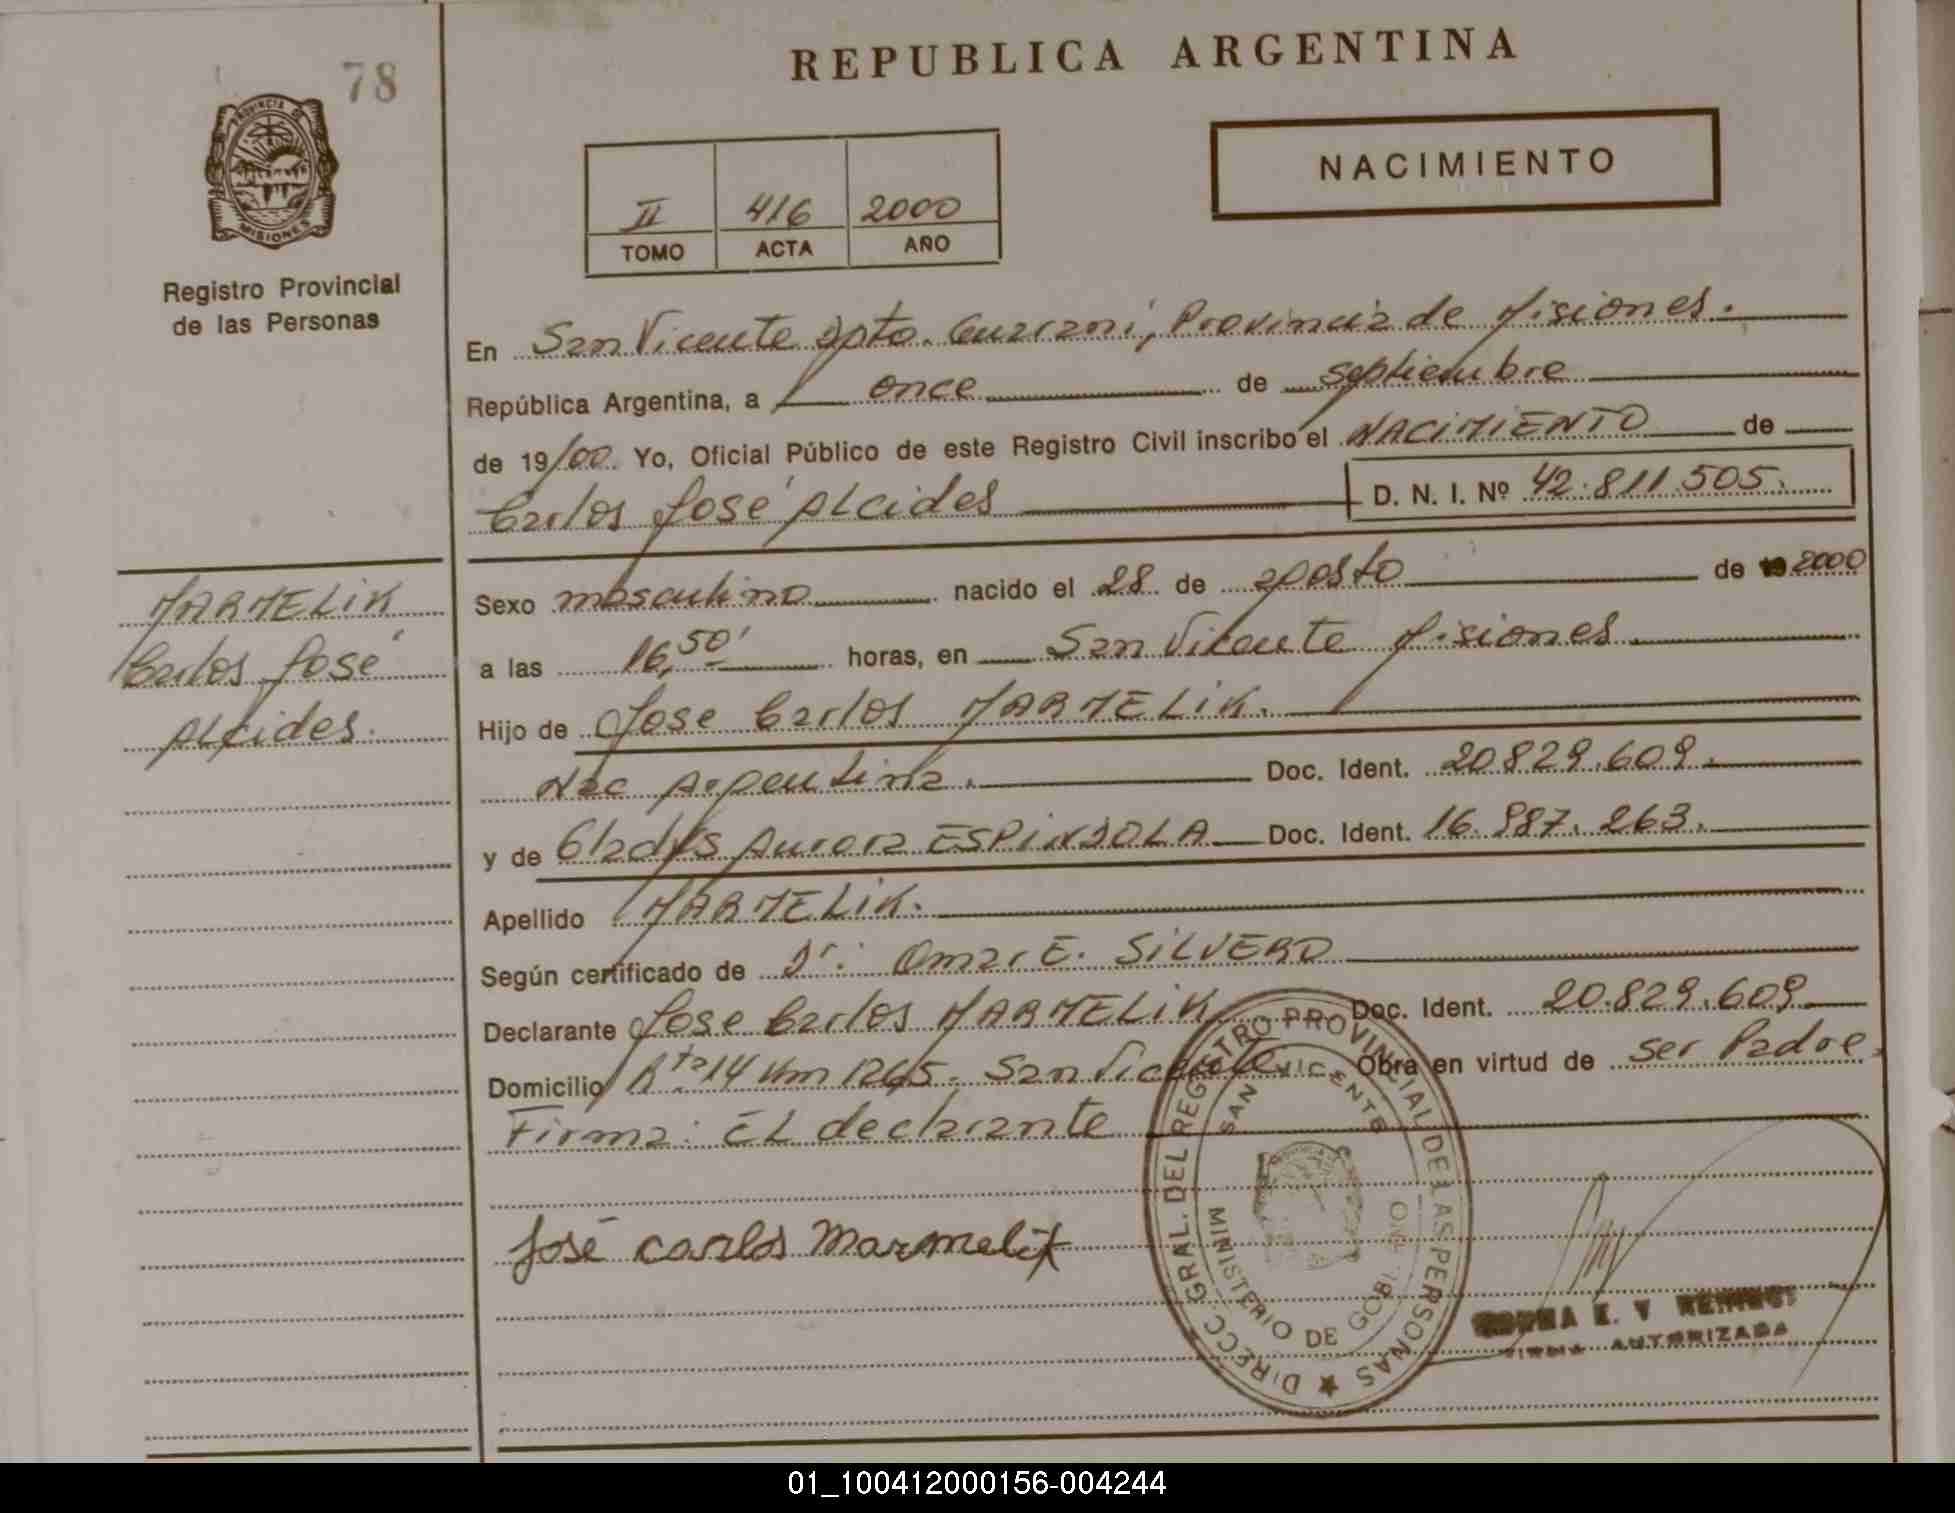 78
REPUBLICA ARGENTINA
PROVINCIA DE
MISIONES
Registro Provincial
de las Personas
NACIMIENTO
II 416 2000
TOMO ACTA AÑO
En San Vicente Dpto. Guaraní, Provincia de Misiones.
República Argentina, a once de septiembre
de 19/00. Yo, Oficial Público de este Registro Civil inscribo el NACIMIENTO de
Carlos José Alcides D. N. I. Nº 42.811.505.
MARMELIK
Carlos José
Alcides.
Sexo masculino nacido el 28 de agosto de 19 2000
a las 16,50' horas, en San Vicente Misiones
Hijo de Jose Carlos MARMELIK.
Nac Argentina. Doc. Ident. 20.829.609.
y de Gladys Aurora ESPINDOLA Doc. Ident. 16.987.263.
Apellido MARMELIK.
Según certificado de Dr. Omar E. SILVERO
Declarante Jose Carlos MARMELIK Doc. Ident. 20.829.609
Domicilio Rta 14 Km 1265. San Vicente Obra en virtud de ser Padre.
Firma: EL declarante
José Carlos Marmelik
DIRECC. GRAL. DEL REGISTRO PROVINCIAL DE LAS PERSONAS
SAN VICENTE
MINISTERIO DE GOBIERNO
E. V
FIRMA AUTORIZADA
01_100412000156-004244